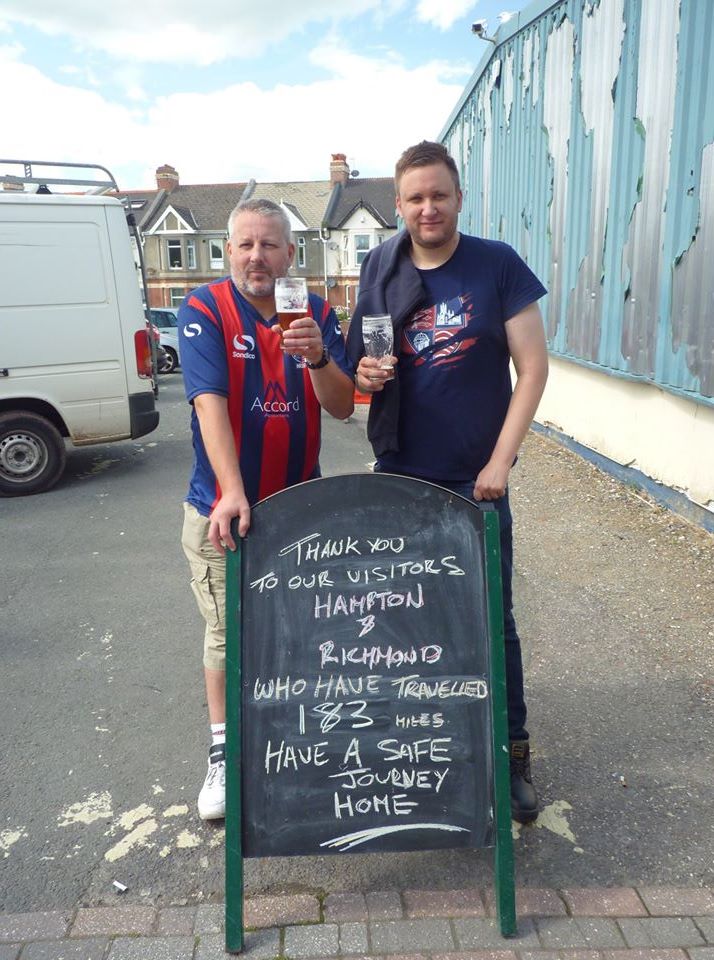 Sondico
Accord
THANK YOU
TO OUR VISITORS
HAMPTON
&
RICHMOND
WHO HAVE TRAVELLED
183 MILES
HAVE A SAFE
JOURNEY
HOME